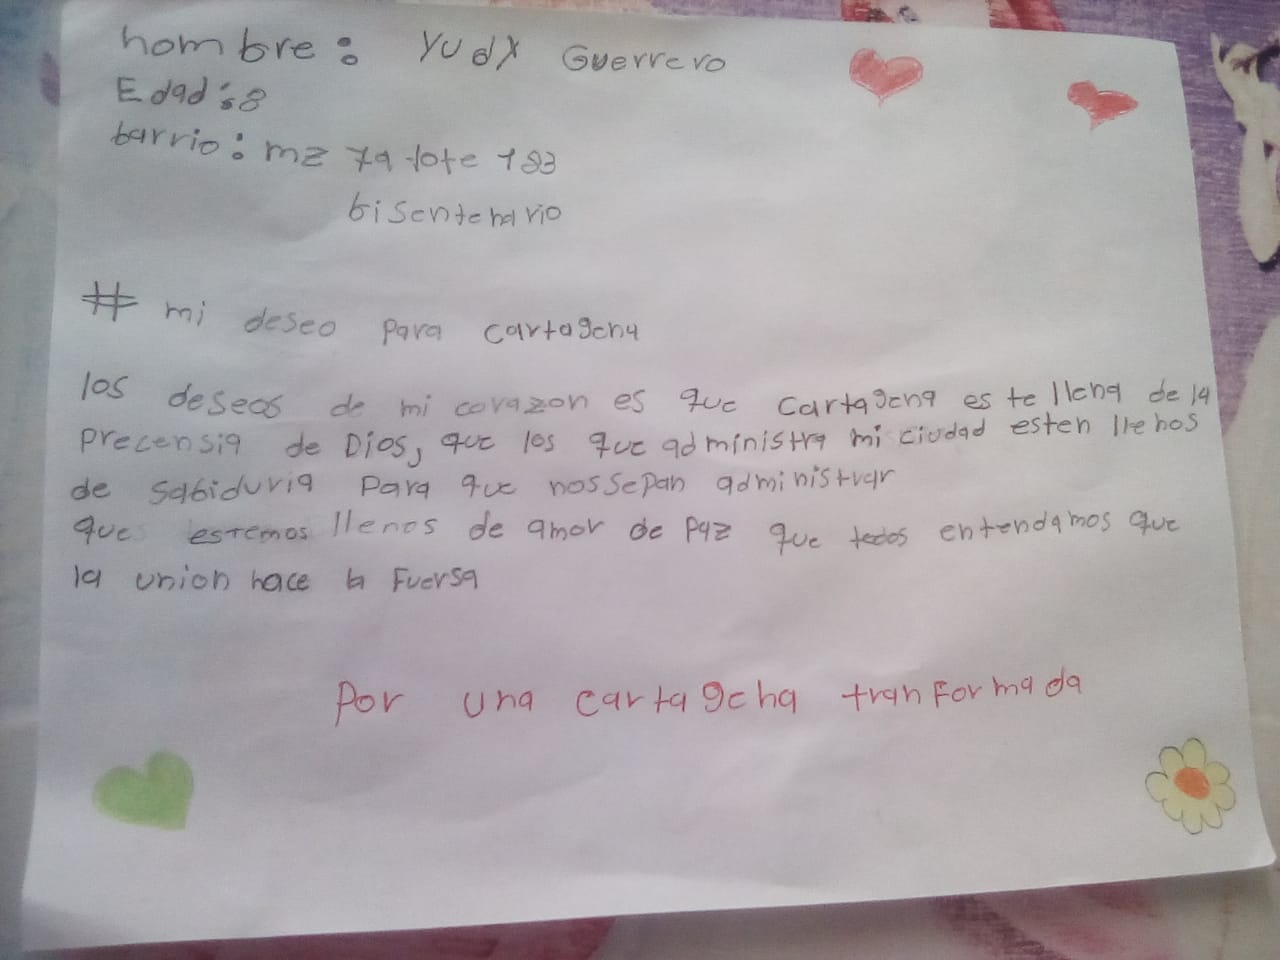 nombre: Yudy Guerrero
Edad: 8
barrio: mz 7a lote 183
bisentenario
# mi deseo para cartagena
los deseos de mi corazon es que cartagena este llena de la
precensia de Dios, que los que administra mi ciudad esten llenos
de sabiduria para que nos sepan administrar
que estemos llenos de amor de paz que todos entendamos que
la union hace la fuersa
Por una cartagena tranformada